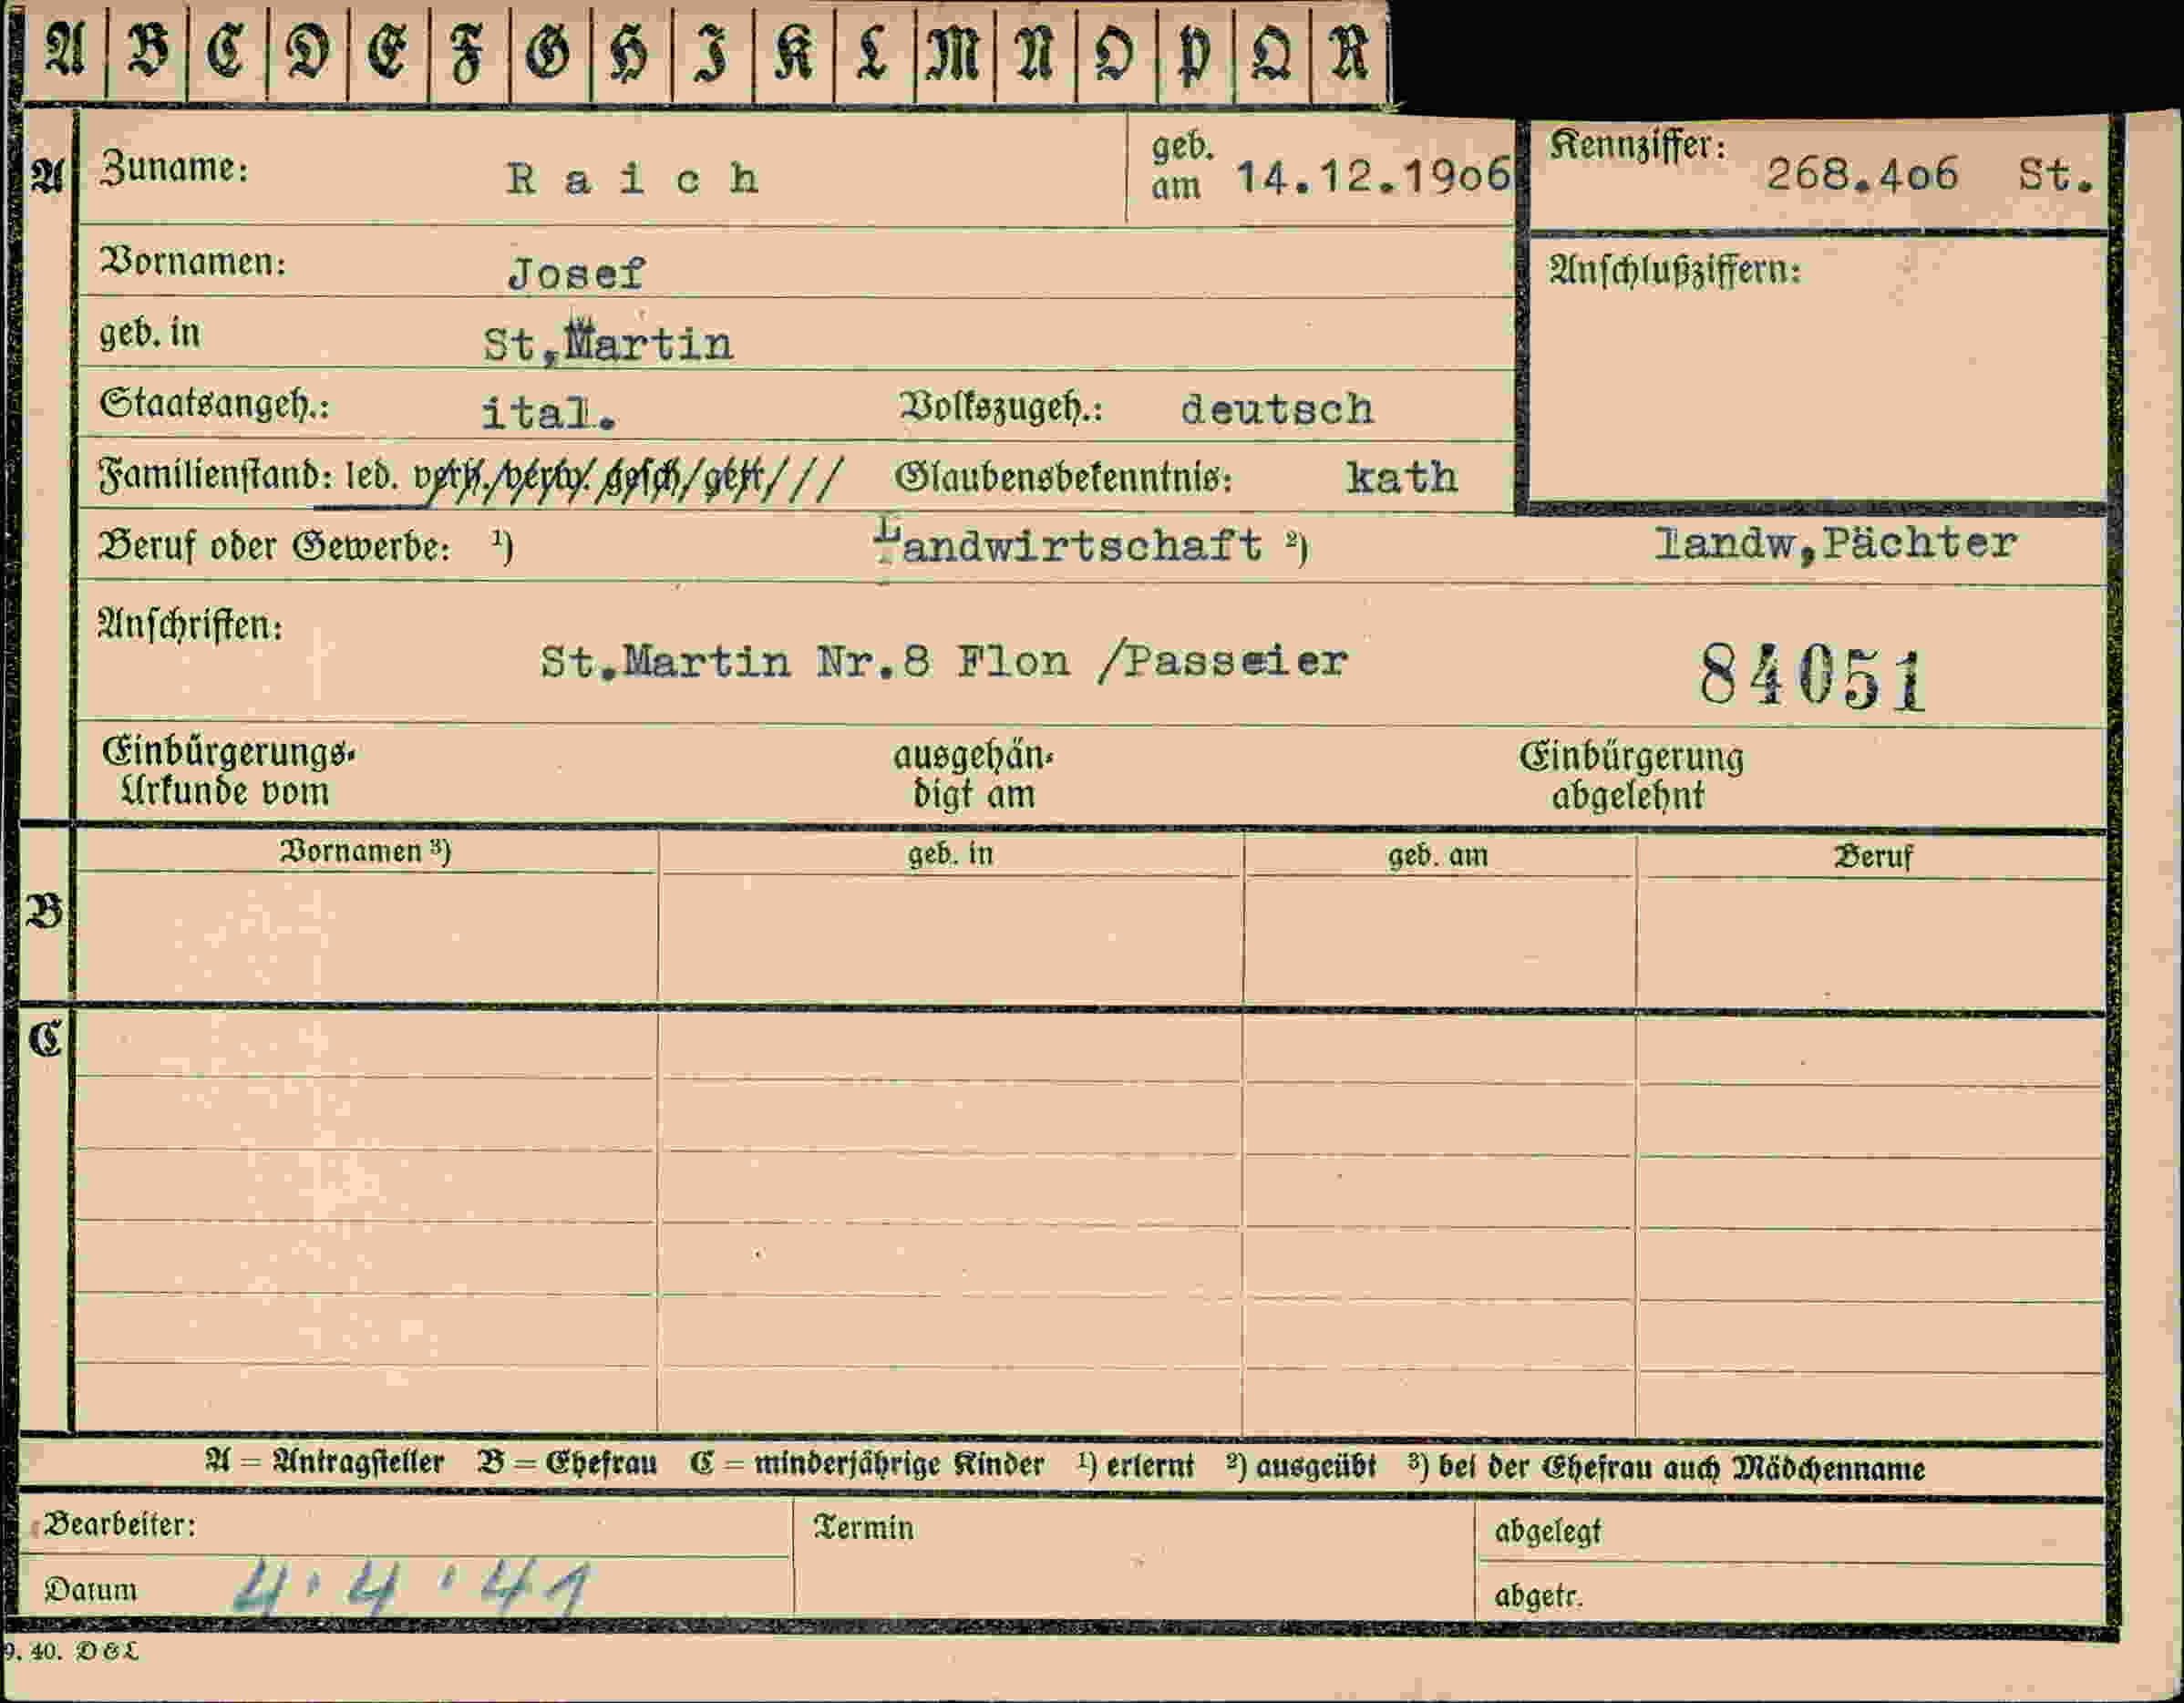 A B C D E F G H I K L M N O P Q R
A Zuname: Raich geb. am 14.12.19o6 Kennziffer: 268.4o6 St.
Vornamen: Josef Anschlußziffern:
geb. in St,Martin
Staatsangeh.: ital. Volkszugeh.: deutsch
Familienstand: led. verh./verw. gesch/getr/// Glaubensbekenntnis: kath
Beruf oder Gewerbe: ¹) Landwirtschaft ²) landw,Pächter
Anschriften:
St.Martin Nr.8 Flon /Passeier 84051
Einbürgerungs- ausgehän- Einbürgerung
Urkunde vom digt am abgelehnt
Vornamen ³) geb. in geb. am Beruf
B
C
A = Antragsteller B = Ehefrau C = minderjährige Kinder ¹) erlernt ²) ausgeübt ³) bei der Ehefrau auch Mädchenname
Bearbeiter: Termin abgelegt
Datum 4.4.41 abgetr.
9. 40. D&L